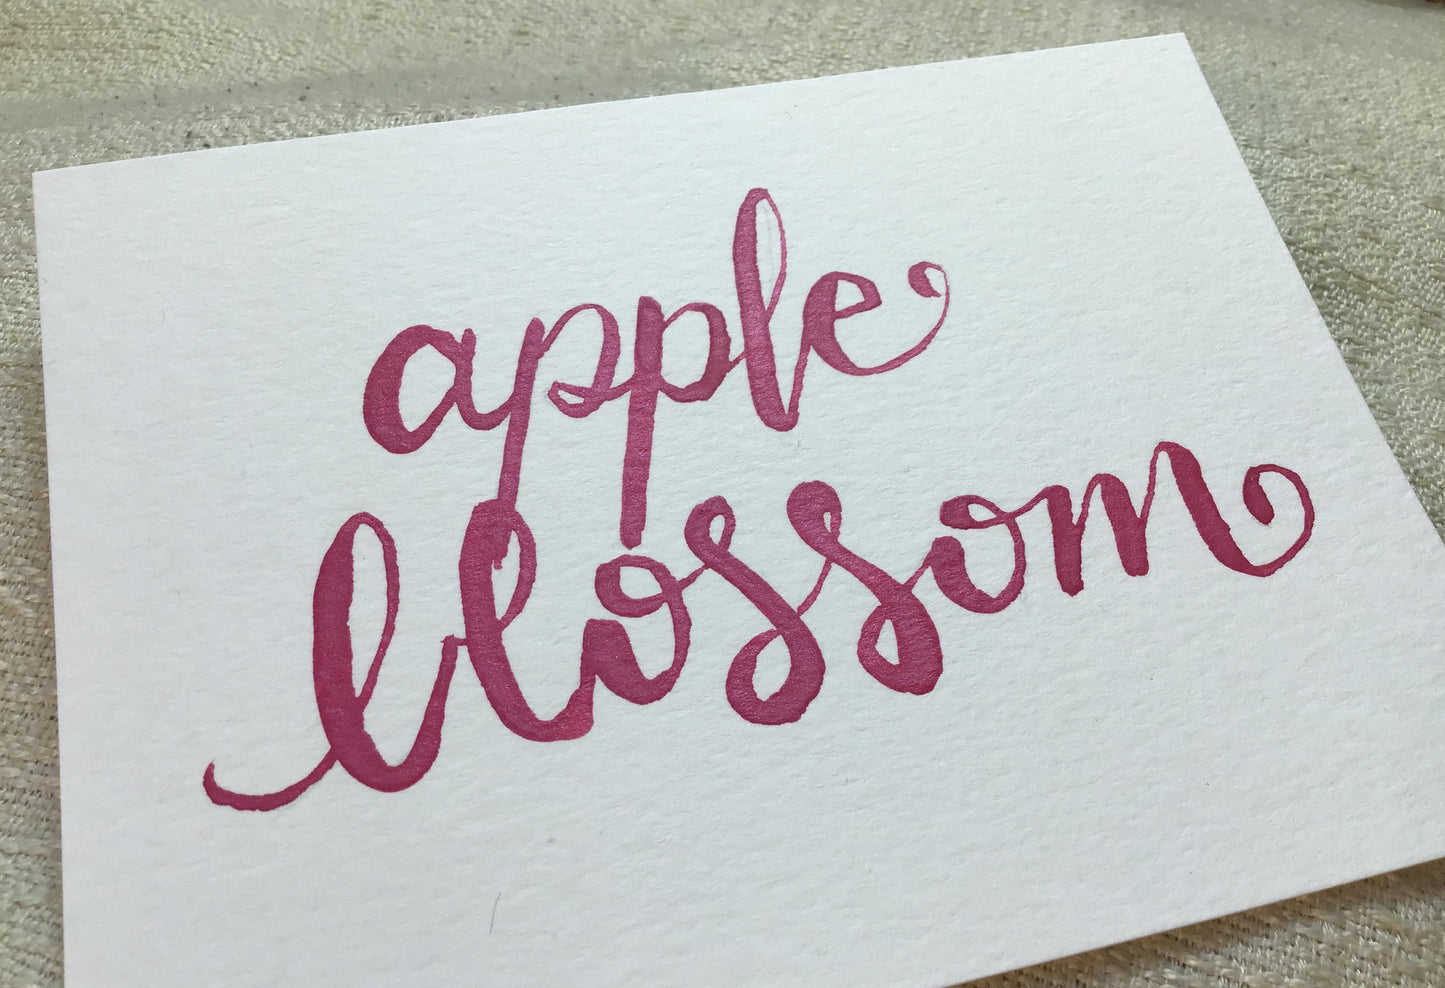 apple
blossom